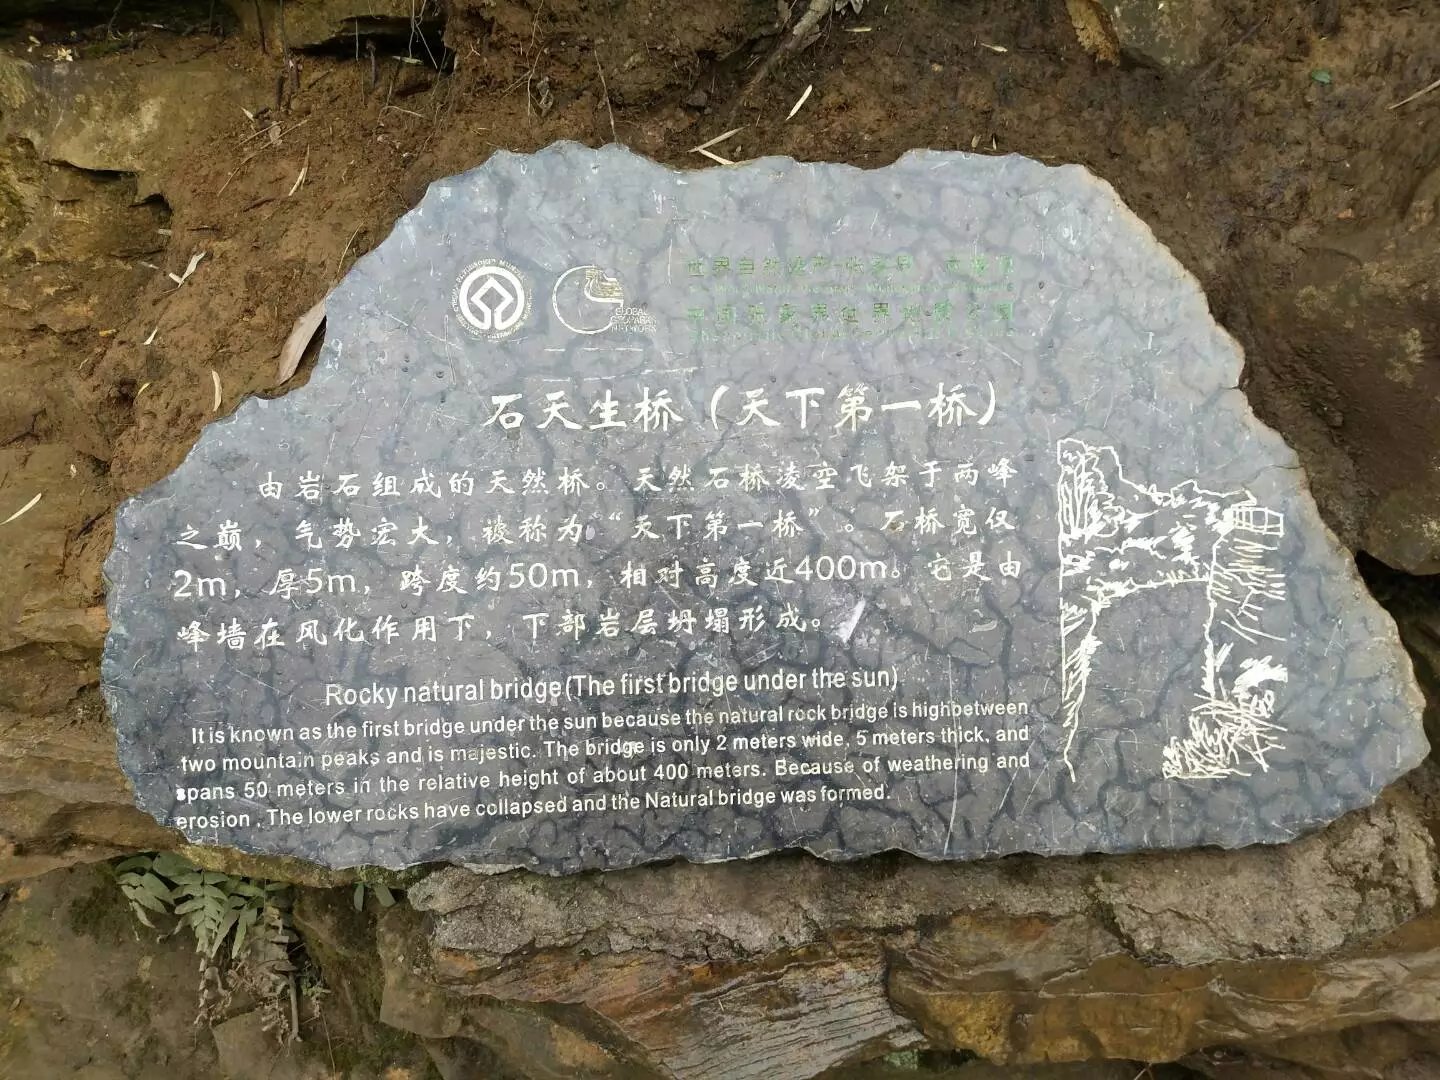 GLOBAL
GEOPARKS
NETWORK
世界自然遗产-张家界
中国张家界世界地质公园
石天生桥（天下第一桥）
由岩石组成的天然桥。天然石桥凌空飞架于两峰
之巅，气势宏大，被称为“天下第一桥”。石桥宽仅
2m，厚5m，跨度约50m，相对高度近400m。它是由
峰墙在风化作用下，下部岩层坍塌形成。
Rocky natural bridge(The first bridge under the sun)
It is known as the first bridge under the sun because the natural rock bridge is highbetween
two mountain peaks and is majestic. The bridge is only 2 meters wide, 5 meters thick, and
spans 50 meters in the relative height of about 400 meters. Because of weathering and
erosion . The lower rocks have collapsed and the Natural bridge was formed.